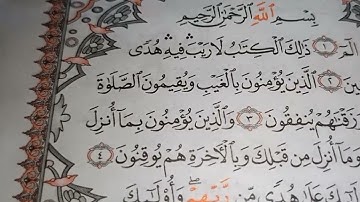 بِسْمِ اللَّهِ الرَّحْمَٰنِ الرَّحِيمِ
الٓمٓ ١ ذَٰلِكَ الْكِتَابُ لَا رَيْبَ فِيهِ هُدًى
٢ الَّذِينَ يُؤْمِنُونَ بِالْغَيْبِ وَيُقِيمُونَ الصَّلَاةَ
رَزَقْنَاهُمْ يُنفِقُونَ ٣ وَالَّذِينَ يُؤْمِنُونَ بِمَا أُنزِلَ
وَمَا أُنزِلَ مِن قَبْلِكَ وَبِالْآخِرَةِ هُمْ يُوقِنُونَ ٤
عَلَىٰ هُدًى مِّن رَّبِّهِمْ ۖ وَأُولَٰئِكَ